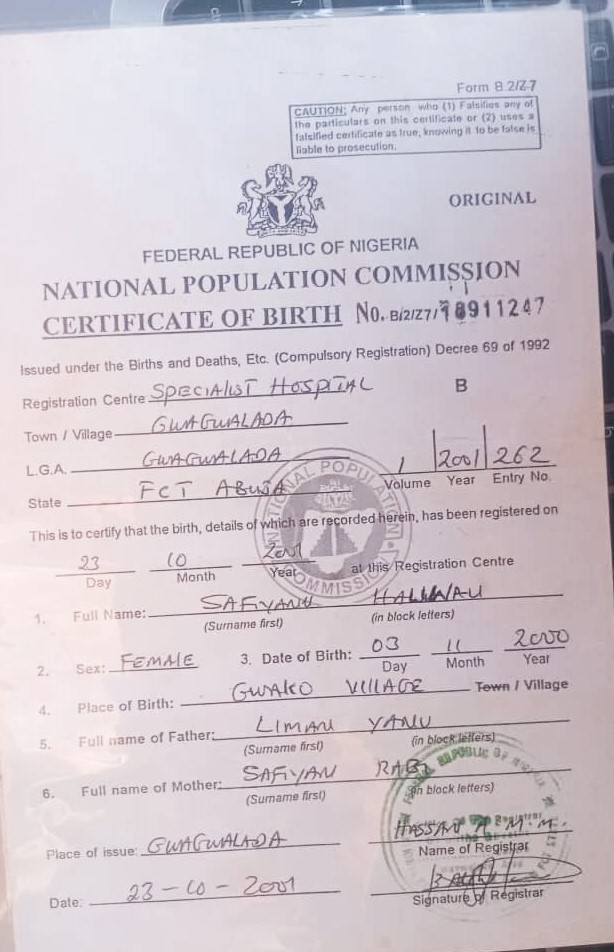 Form B.2/Z7
CAUTION: Any person who (1) Falsifies any of
the particulars on this certificate or (2) uses a
falsified certificate as true, knowing it to be false is
liable to prosecution.
ORIGINAL
FEDERAL REPUBLIC OF NIGERIA
NATIONAL POPULATION COMMISSION
CERTIFICATE OF BIRTH No. B/2/Z7/18911247
Issued under the Births and Deaths, Etc. (Compulsory Registration) Decree 69 of 1992
Registration Centre SPECIALIST HOSPITAL B
Town / Village GWAGWALADA
L.G.A. GWAGWALADA 1 2001 262
State FCT ABUJA Volume Year Entry No.
NATIONAL POPULATION COMMISSION
This is to certify that the birth, details of which are recorded herein, has been registered on
23 10 2001 at this Registration Centre
Day Month Year
1. Full Name: SAFIYANU
(Surname first) (in block letters)
2. Sex: FEMALE 3. Date of Birth: 03 11 2000
Day Month Year
4. Place of Birth: GWAKO VILLAGE Town / Village
5. Full name of Father: LIMAN YANU
(Surname first) (in block letters)
6. Full name of Mother: SAFIYAN RABI
(Surname first) (in block letters)
Place of issue: GWAGWALADA HASSAN A. M. M.
Name of Registrar
Date: 23-10-2001
Signature of Registrar